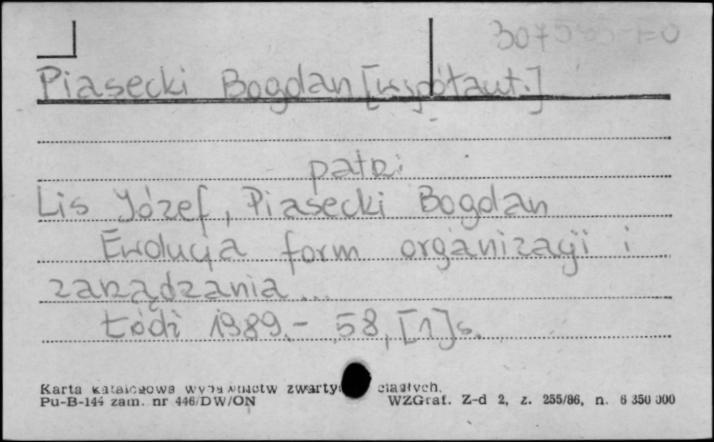 Piasecki Bogdan [współaut.]
patrz:
Lis Józef, Piasecki Bogdan
Ewolucja form organizacji i
zarządzania...
Łódź 1989.- 58, [1] s.
Karta katalogowa wydawnictw zwartych ciągłych.
Pu-B-144 zam. nr 446/DW/ON WZGraf. Z-d 2, z. 255/86, n. 6 350 000